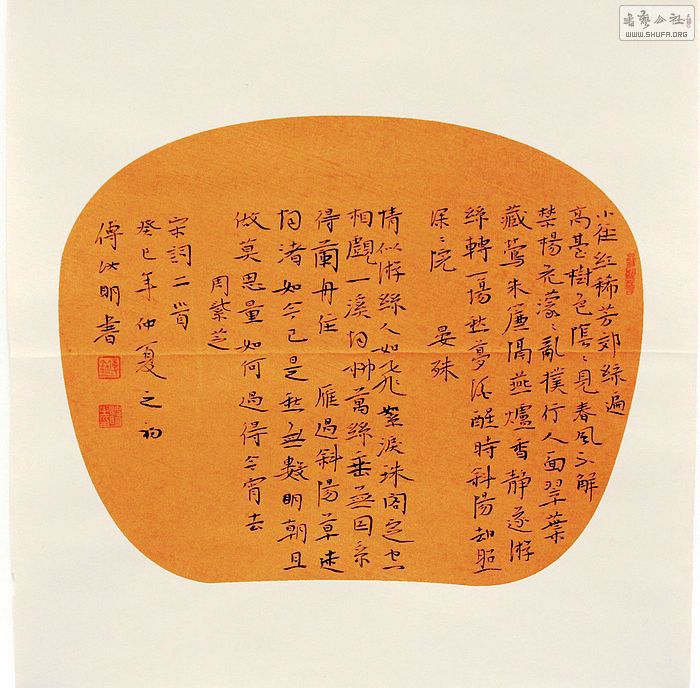 小径紅稀芳郊綠遍
高臺樹色陰〻見春風不解
禁楊花濛〻亂撲行人面翠葉
藏鶯朱簾隔燕爐香静逐游
絲轉一場愁夢酒醒時斜陽却照
深〻院 晏殊
情似游絲人如飛絮淚珠閣定空
相覷一溪烟柳萬絲垂無因系
得蘭舟住 雁過斜陽草迷
烟渚如今已是愁無數明朝且
做莫思量如何過得今宵去
周紫芝
宋詞二首
癸巳年仲夏之初
傅以明書
書藝公社
WWW.SHUFA.ORG